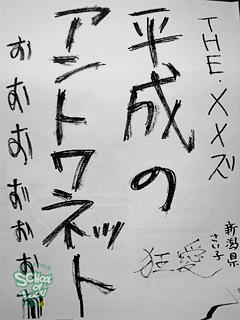 THE XXズ
平成の
アントワネット
おおおおおおお
新潟県
さい子
狂愛
SCHOOL OF LOCK!